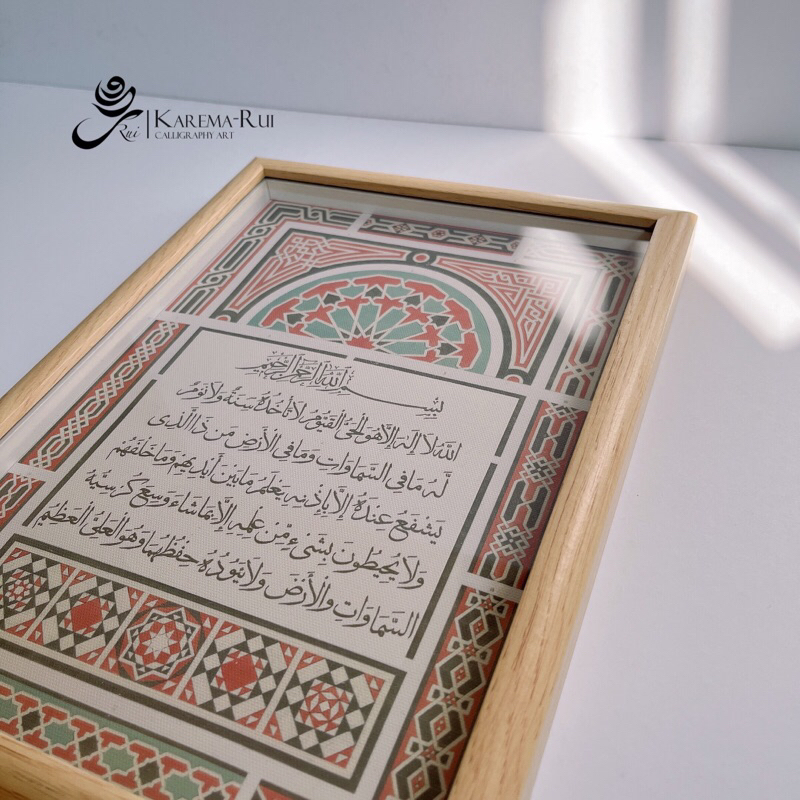 Rui
KAREMA-RUI
CALLIGRAPHY ART
بسم الله الرحمن الرحيم
الله لا إله إلا هو الحي القيوم لا تأخذه سنة ولا نوم
له ما في السماوات وما في الأرض من ذا الذي
يشفع عنده إلا بإذنه يعلم ما بين أيديهم وما خلفهم
ولا يحيطون بشيء من علمه إلا بما شاء وسع كرسيه
السماوات والأرض ولا يئوده حفظهما وهو العلي العظيم